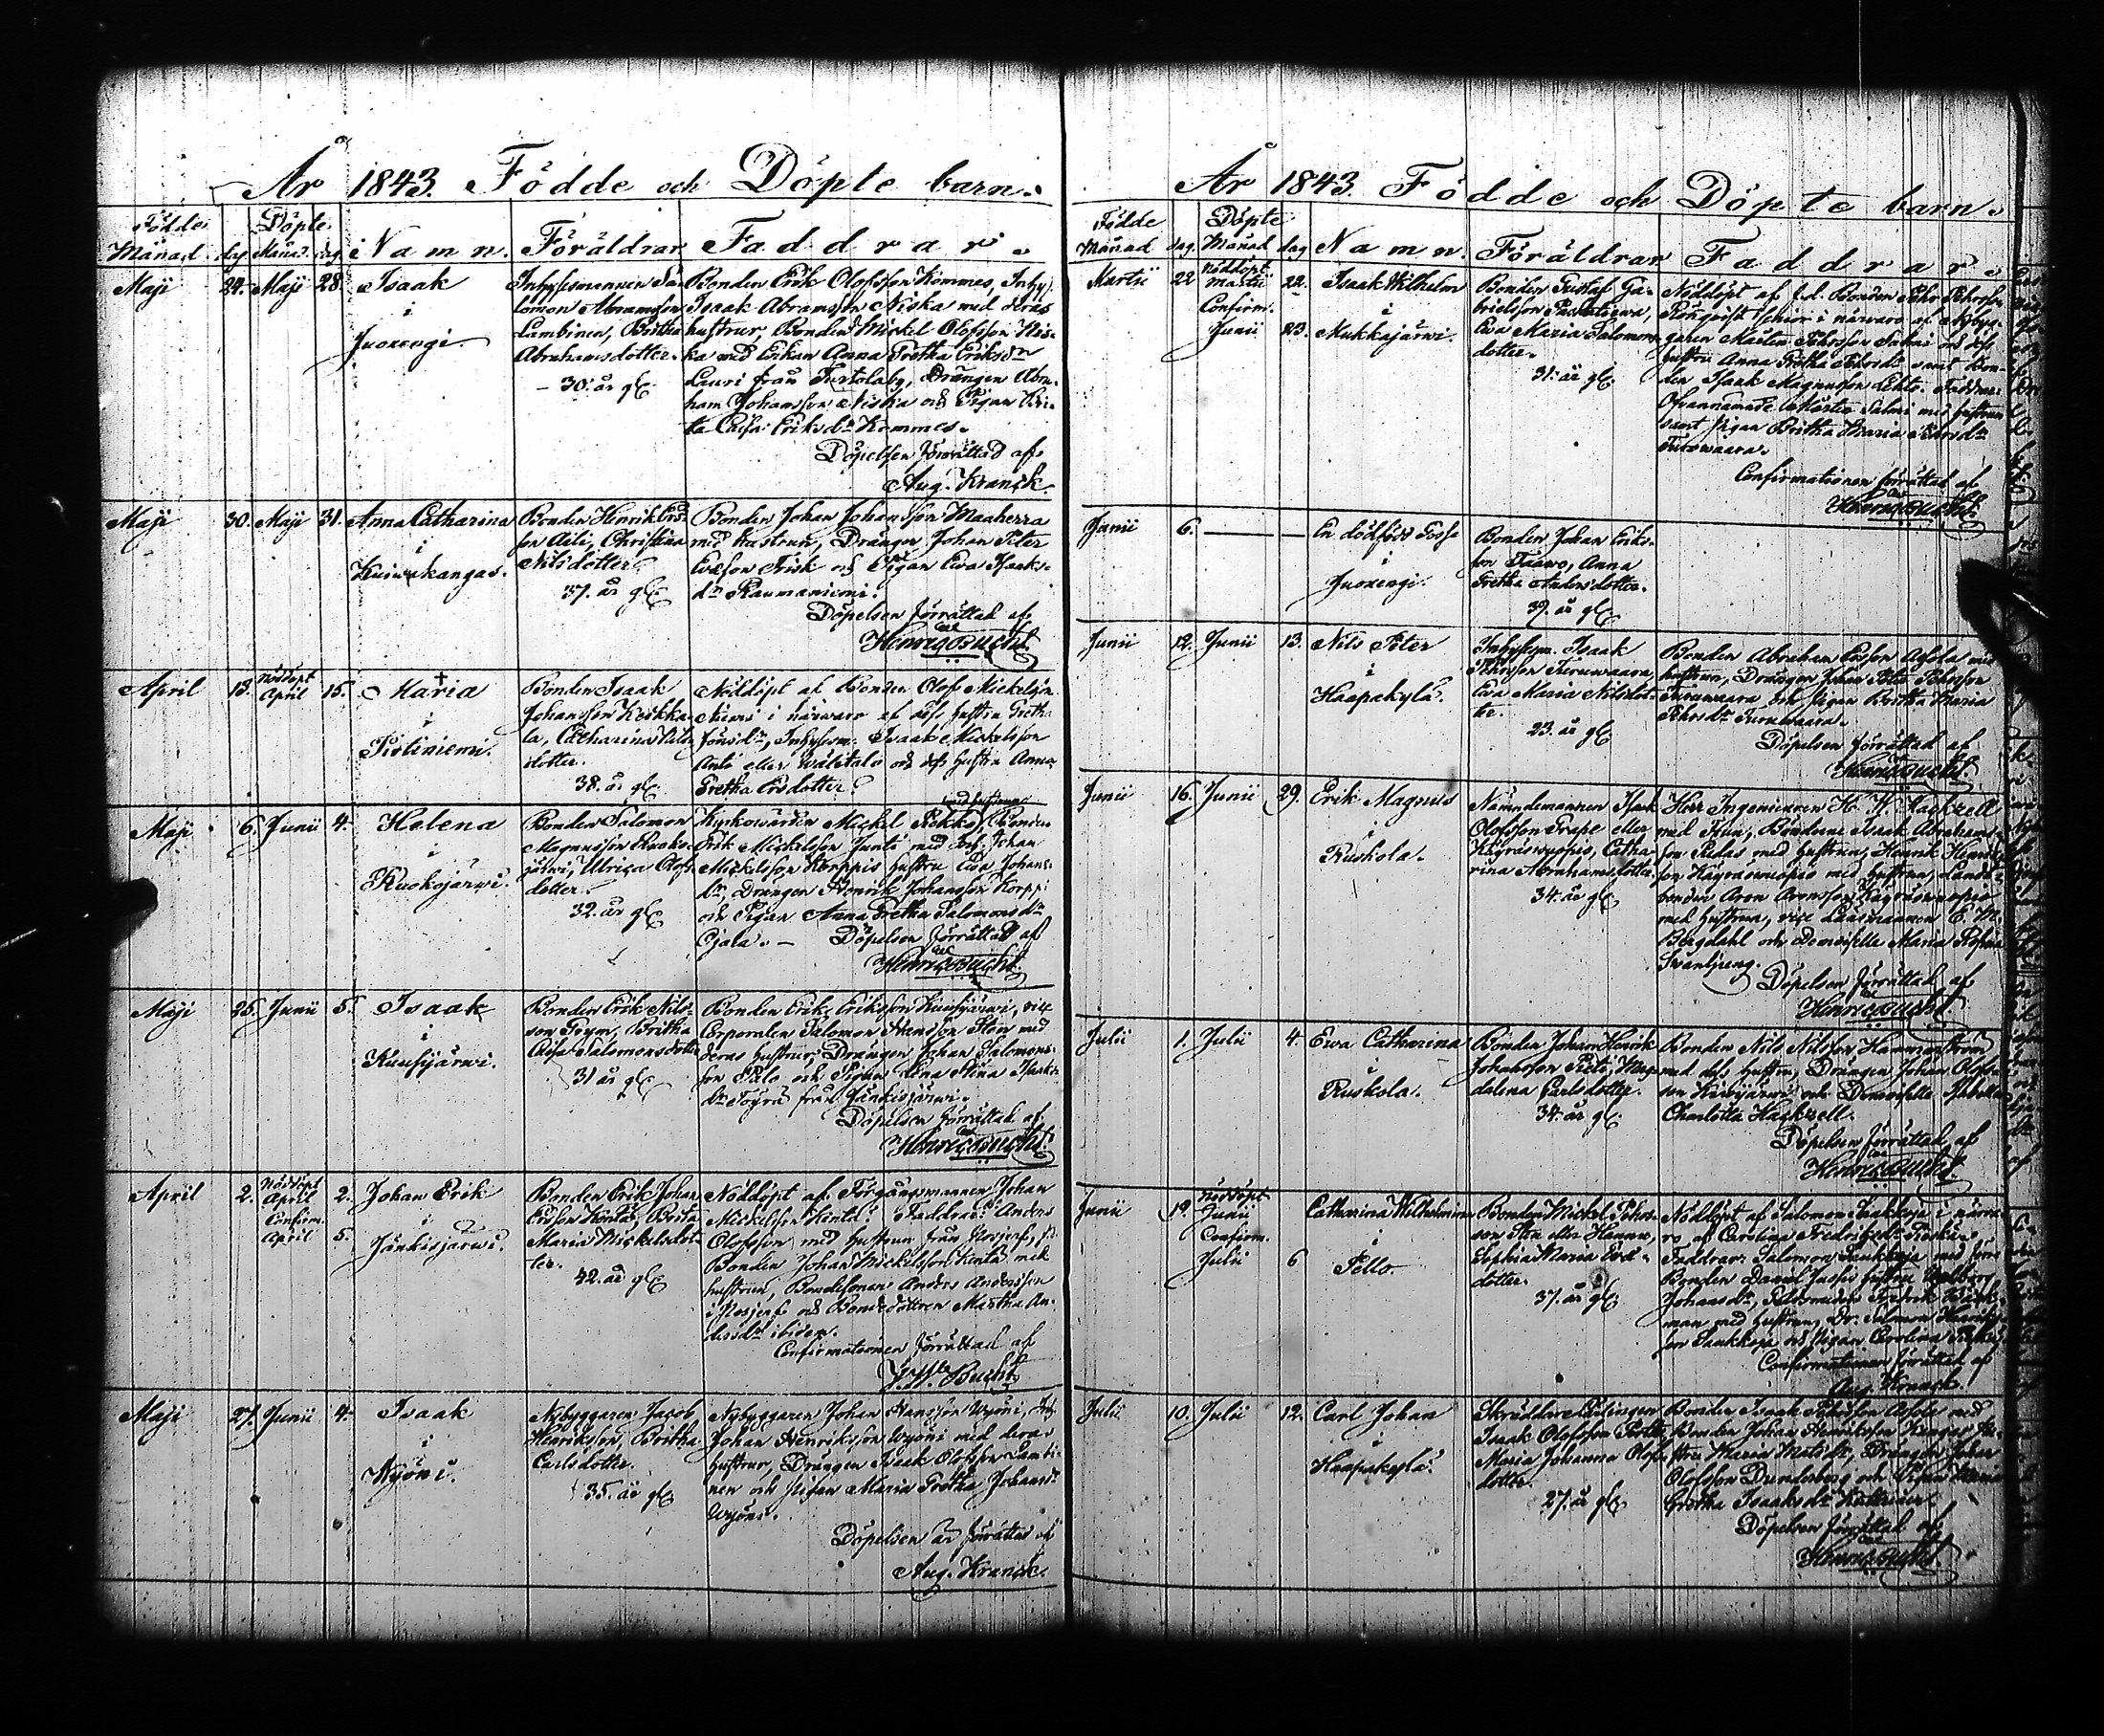 År 1843. Födde och Döpte barn.
Födde Döpte
Månad dag Månad dag Namn. Föräldrar Faddrar.
Maji 24. Maji 28. Isaak
i
Juoxengi
Inhysesmannen Sa-
lomon Abramsson
Lambinen, Britha
Abrahamsdotter.
30. år gl.
Bonden Erik Olofsson Kommes, Inhys.
Isaak Abramsson Niska med deras
hustrur, Bonden Mickel Olofsson Nis-
ka med Enkan Anna Gretha Eriksdr
Lauri från Turtolaby, Drängen Abra-
ham Johansson Niska och Pigan Bri-
ta Caisa Eriksdr Kommes.
Döpelsen förrättad af
Aug. Kranck.
Maji 30. Maji 31. Anna Catharina
i
Kuivakangas.
Bonden Henrik Ers-
son Aili, Christina
Nilsdotter
37. år gl.
Bonden Johan Johansson Maaherra
med hustrun, Drängen Johan Peter
Ersson Frisk och Pigan Ewa Isaaks-
dr Raumaniemi.
Döpelsen förrättad af
Henric Bucht
April 13. nöddöpt April 15. Maria
i
Pirtiniemi.
Bonden Isaak
Johansson Keikka-
la, Catharina Nils-
dotter.
38. år gl.
Nöddöpt af Bonden Olof Mickelsson
Niemi i närwaro af dess hustru Gretha
Jönsdr, Inhysesm. Isaak Mickelsson
Anto eller Wälitalo och dess hustru Anna
Gretha Ersdotter
Maji 6. Junii 4. Helena
i
Ruokojärwi.
Bonden Salomon
Magnusson Ruoko-
järwi, Ulrica Olofs-
dotter.
32. år gl.
Kyrkowärden Mickel Rokko med hustrun, Bonden
Erik Mickelsson Junti med d:o, Johan
Mickelsson Korppis hustru Ewa Johans-
dr, Drängen Henrik Johansson Korppi
och Pigan Anna Gretha Salomonsdr
Ojala. — Döpelsen förrättad af
Henric Bucht.
Maji 25. Junii 5. Isaak
i
Kuusijärwi.
Bonden Erik Nils-
son Grym, Britha
Caisa Salomonsdotter
31 år gl.
Bonden Erik Eriksson Kuusijärwi, vice
Corporalen Salomon Hansson Sten med
deras hustrur, Drängen Johan Salomons-
son Palo och Pigan Lena Stina Isaks-
dr Töyrä från Jänkisjärwi.
Döpelsen förrättad af
Henric Bucht
April 2. nöddöpt April 2. Johan Erik
Confirm. April 5. i
Jänkisjärwi.
Bonden Erik Johan
Ersson Kenta, Brita
Maria Mickelsdot-
ter.
42. år gl.
Nöddöpt af Förgångsmannen Johan
Mickelsson Kenta. Faddrar: Anders
Olofsson med hustrun från Rosjenf,
Bonden Johan Mickelsson Kenta med
hustrun, Bondesonen Anders Andersson
i Rosjenf och Bondedottren Martha An-
dersdr ibidem.
Confirmationen förrättad af
J. W. Bucht
Maji 27. Junii 4. Isaak
i
Wyöni.
Nybyggaren Jacob
Henriksson, Britha
Carlsdotter.
35. år gl.
Nybyggaren Johan Hansson Wyöni, Inh.
Johan Henriksson Wyöni med deras
hustrur, Drängen Isaak Olofsson Lambi-
nen och pigan Maria Gretha Johansdr
Wyöni.
Döpelsen är förrättad af
Aug. Kranck.
År 1843. Födde och Döpte barn.
Födde Döpte
Månad dag. Månad dag Namn. Föräldrar Faddrar.
Martii 22 nöddöpt Martii 22. Isaak Wilhelm
Confirm. Junii 23. i
Mukkajärwi.
Bonden Gustaf Ga-
brielsson
Ewa Maria Salomons-
dotter.
31. år gl.
Nöddöpt af f.d. Bonden Pehr Pehrsson
i närwaro af Nybyg-
garen Mårten Pehrsson Salmi och dess
hustru Anna Gretha Pehrsdr samt Bon-
den Isaak Magnusson Lehto. Faddrar:
Ofvannämnde Mårten Salmi med hustrun
samt pigan Britha Maria Pehrsdr
Turowaara.
Confirmationen förrättad af
Henric Bucht.
Junii 6. En dödfödd Gosse
i
Juoxengi.
Bonden Johan Eriks-
son Taawo, Anna
Gretha Andersdotter.
39. år gl.
Junii 12. Junii 13. Nils Peter
i
Haapakylä.
Inhysesm. Isaak
Pehrsson Turuwaara,
Ewa Maria Nilsdot-
ter.
23. år gl.
Bonden Abraham Ersson Asjola med
hustrun, Drängen Johan Peter Pehrsson
Turuwaara och pigan Britha Maria
Pehrsdr Turuwaara.
Döpelsen förrättad af
Henric Bucht.
Junii 16. Junii 29. Erik Magnus
i
Ruskola.
Nämndemannen Isaak
Olofsson Grape eller
Käyräwuopio, Catha-
rina Abrahamsdotter.
34. år gl.
Herr Ingenieuren H. W. Hackzell
med Frun, Bönderne Isaak Abrahams-
son Pudas med hustrun, Henrik Henriks-
son Käyräwuopio med hustrun, Lands-
bonden Aron Aronsson Käyräwuopio
med hustrun, vice Länsmannen C. M.
Bergdahl och Demoiselle Maria Sophia
Swanljung.
Döpelsen förrättad af
Henric Bucht.
Julii 1. Julii 4. Ewa Catharina
i
Ruskola.
Bonden Johan Henrik
Johansson Pieti, Mag-
dalena Carlsdotter.
34. år gl.
Bonden Nils Nilsson Hammarström
med dess hustru, Drängen Johan Olofs-
son Kiwijärwi och Demoiselle Isabella
Charlotta Hackzell.
Döpelsen förrättad af
Henric Bucht.
Junii 19. nöddöpt Junii Catharina Wilhelmina
Confirm. Julii 6 i
Pello.
Bonden Mickel Pehrs-
son Sten eller Hannu,
Sophia Maria Ers-
dotter.
37. år gl.
Nöddöpt af Salomon Laukkoja i närwa-
ro af Carolina Fredriksdr
Faddrar: Salomon Laukkoja med
Bonden Daniel Jussis hustru Walborg
Johansdr, Fredrik Björk-
man med hustrun, Dr. Salmon Henriks-
son Laukkoja och Pigan Carolina
Confirmationen förrättad af
Aug. Kranck.
Julii 10. Julii 12. Carl Johan
i
Haapakylä.
Skräddare Lärlingen
Isaak Olofsson
Maria Johanna Olofs-
dotter.
27. år gl.
Bonden Isaak Pehrsson Asjola med
Bonden Johan Henriksson Kangas hu-
stru Maria Matsdr, Drängen Johan
Olofsson Drundeberg och Pigan
Gretha Isaaksdr
Döpelsen förrättad af
Henric Bucht